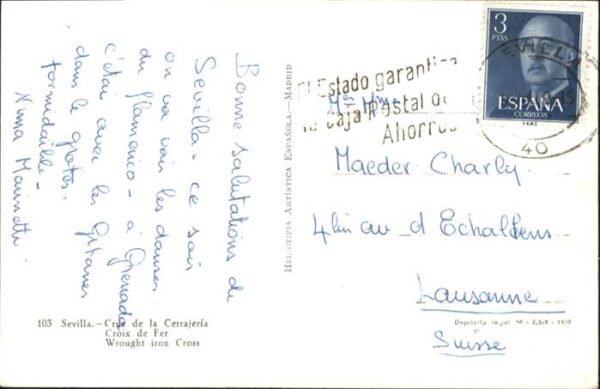 Bonne salutations de
Sevilla - ce soir
on va voir les danses
du flamenco - à Grenada
c'était avec les Gitanes
dans le grotes.
formidable -
103 Sevilla.—Cruz de la Cerrajería
Croix de Fer
Wrought iron Cross
HELIOTIPIA ARTÍSTICA ESPAÑOLA.—MADRID
El Estado garantiza
la Caja Postal de
Ahorros
3
PTAS
ESPAÑA
CORREOS
SEVILLA
40
Maeder Charly
av d Echallens
Lausanne
Suisse
Depósito legal M - 2.349 - 1959